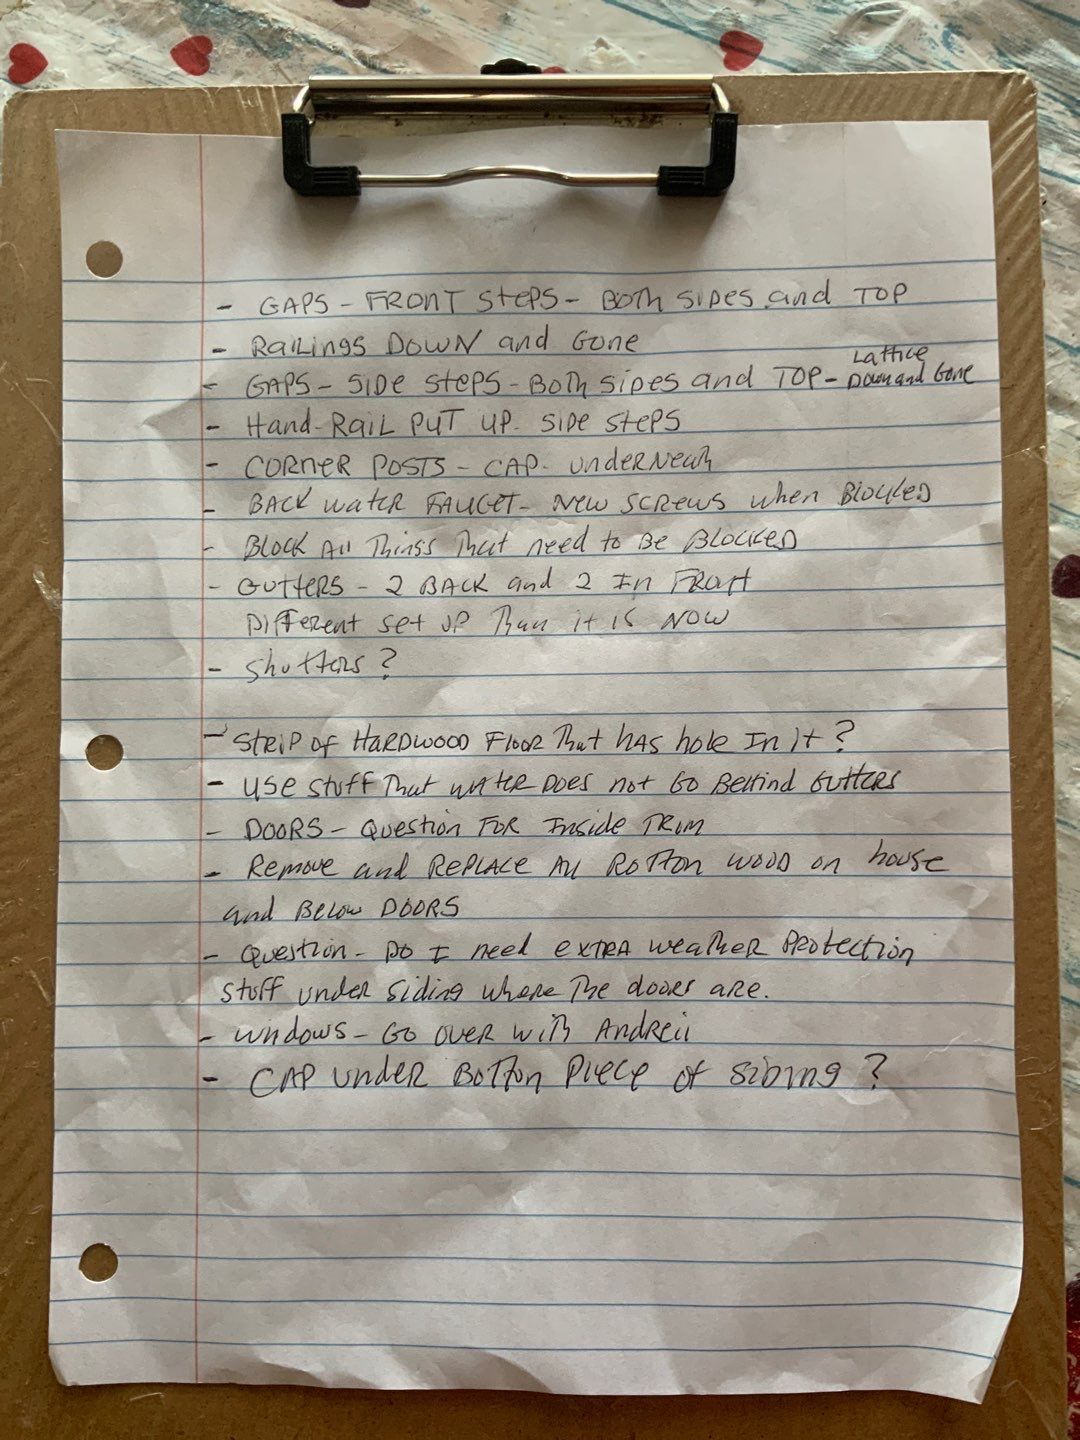 - GAPS - FRONT STEPS - BOTH SIDES and TOP
- RAILINGS DOWN and Gone
- GAPS - SIDE STEPS - BOTH SIDES and TOP - Lattice Down and Gone
- Hand-RAIL PUT UP - SIDE STEPS
- CORNER POSTS - CAP - underneath
- BACK water FAUCET - NEW SCREWS when BLOCKED
- BLOCK All Things That need to Be BLOCKED
- GUTTERS - 2 BACK and 2 In Front
Different set UP Than it is NOW
- shutters?
- STRIP OF HARDWOOD FLOOR That has hole In it?
- USE stuff That WATER DOES not Go Behind Gutters
- DOORS - Question FOR Inside TRIM
- Remove and REPLACE All ROTTON WOOD on house
and Below DOORS
- Question - DO I need EXTRA weather Protection
stuff under siding where The doors are.
- Windows - Go over with Andreii
- CAP under Bottom Piece of siding?